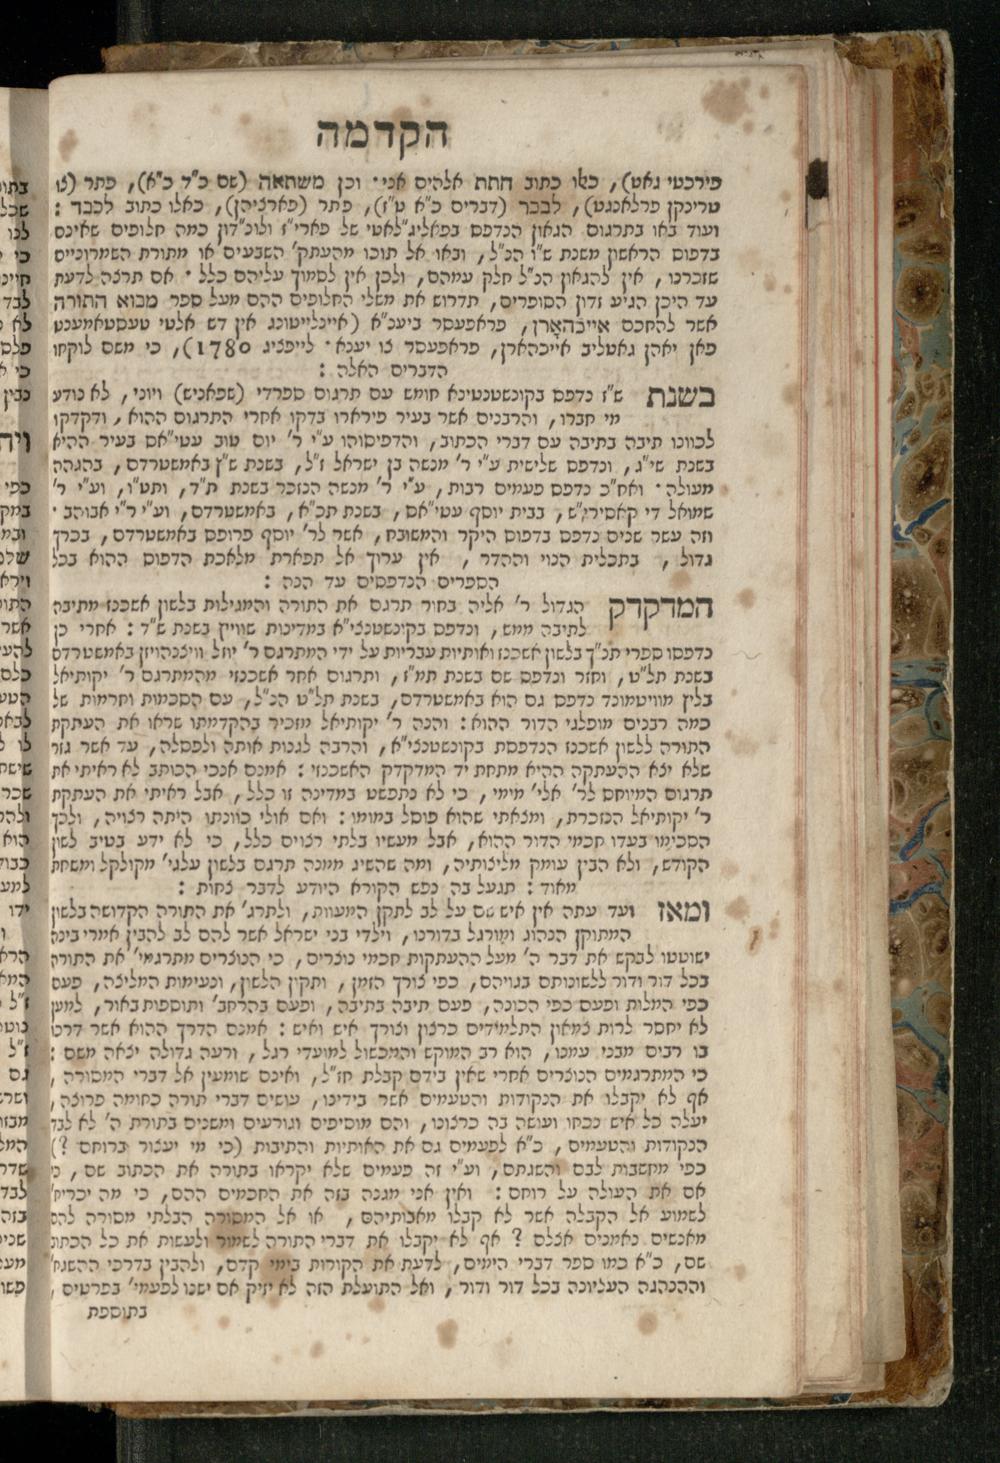 הקדמה
פירכטי גאט), כאלו כתוב חתת אלהים אני· וכן משתאה (שם כ"ד כ"א), פתר (צו
טרינקן פרלאנגט), לבכר (דברים כ"א ט"ז), פתר (פארציהן), כאלו כתוב לכבד :
ועוד באו בתרגום הגאון הנדפס בפאליג"לאטי של פארי"ז ולונ"דון כמה חלופים שאינם
בדפוס הראשון משנת ש"ו הנ"ל, ובאו אל תוכו מהעתק' השבעים או מתורת השמרוניים
שזכרנו, אין להגאון הנ"ל חלק עמהם, ולכן אין לסמוך עליהם כלל· אם תרצה לדעת
עד היכן הגיע זדון הסופרים, תדרוש את משלי החלופים ההם מעל ספר מבוא התורה
אשר להחכם אייכהארן, פראפעסר ביענ"א (איינלייטונג אין דש אלטי טעסטאמענט
פאן יאהן גאטליב אייכהארן, פראפעסר צו יענא· לייפציג 1780), כי משם לוקחו
הדברים האלה :
בשנת ש"ז נדפס בקונשטנטינא חומש עם תרגום ספרדי (שפאניש) ויוני, לא נודע
מי חברו, והרבנים אשר בעיר פירארו בדקו אחרי התרגום ההוא, ודקדקו
לכוונו תיבה בתיבה עם דברי הכתוב, והדפיסוהו ע"י ר' יום טוב עטי"אס בעיר ההיא
בשנת שי"ג, ונדפס שלישית ע"י ר' מנשה בן ישראל ז"ל, בשנת ש"ץ באמשטרדם, בהגהה
מעולה· ואח"כ נדפס פעמים רבות, ע"י ר' מנשה הנזכר בשנת ת"ד, ותט"ו, וע"י ר'
שמואל די קאסירי"ש, בבית יוסף עטי"אס, בשנת תכ"א, באמשטרדם, וע"י ר"י אבוהב·
וזה עשר שנים נדפס בדפוס היקר והמשובח, אשר לר' יוסף פרופס באמשטרדם, בכרך
גדול, בתכלית הנוי וההדר, אין ערוך אל תפארת מלאכת הדפוס ההוא בכל
הספרים הנדפסים עד הנה :
המדקדק הגדול ר' אליה בחור תרגם את התורה והמגילות בלשון אשכנז מתיבה
לתיבה ממש, ונדפס בקונשטנצי"א במדינות שווייץ בשנת ש"ד : אחרי כן
נדפסו ספרי תנ"ך בלשון אשכנז ואותיות עבריות על ידי המתרגם ר' יוזל וויצנהויזן באמשטרדם
בשנת תל"ט, וחזר ונדפס שם בשנת תמ"ז, ותרגום אחר אשכנזי מהמתרגם ר' יקותיאל
בליץ מוויטמונד נדפס גם הוא באמשטרדם, בשנת תל"ט הנ"ל, עם הסכמות וחרמות של
כמה רבנים מופלגי הדור ההוא : והנה ר' יקותיאל מזכיר בהקדמתו שראו את העתקת
התורה ללשון אשכנז הנדפסת בקונשטנצי"א, והרבה לגנות אותה ולפסלה, עד אשר גזר
שלא יצא ההעתקה ההיא מתחת יד המדקדק האשכנזי : אמנם אנכי הכותב לא ראיתי את
תרגום המיוחס לר' אלי' מימי, כי לא נתפשט במדינה זו כלל, אבל ראיתי את העתקת
ר' יקותיאל הנזכרת, ומצאתי שהוא פוסל במומו : ואם אולי כוונתו היתה רצויה, ולכך
הסכימו בעדו חכמי הדור ההוא, אבל מעשיו בלתי רצוים כלל, כי לא ידע בטיב לשון
הקודש, ולא הבין עומק מליצותיה, ומה שהשיג ממנה תרגם בלשון עלגי' מקולקל ומשחת
מאוד : תגעל בה נפש הקורא היודע לדבר צחות :
ומאז ועד עתה אין איש שם על לב לתקן המעוות, ולתרג' את התורה הקדושה בלשון
המתוקן הנהוג ומורגל בדורנו, וילדי בני ישראל אשר להם לב להבין אמרי בינה
ישוטטו לבקש את דבר ה' מעל ההעתקות חכמי נוצרים, כי הנוצרים מתרגמי' את התורה
בכל דור ודור ללשונותם בגויהם, כפי צורך הזמן, ותקון הלשון, ונעימות המליצה, פעם
כפי המלות ופעם כפי הכונה, פעם תיבה בתיבה, ופעם בהרחב' ותוספות באור, למען
לא יחסר לרות צמאון התלמידים כרצון וצורך איש ואיש : אמנם הדרך ההוא אשר דרכו
בו רבים מבני עמנו, הוא רב המוקש והמכשול למועדי רגל, ורעה גדולה יצאה משם :
כי המתרגמים הנוצרים אחרי שאין בידם קבלת חז"ל, ואינם שומעין אל דברי המסורה,
אף לא יקבלו את הנקודות והטעמים אשר בידינו, עושים דברי תורה כחומה פרוצה,
יעלה כל איש נכחו ועושה בה כרצונו, והם מוסיפים וגורעים ומשנים בתורת ה' לא לבד
הנקודות והטעמים, כ"א לפעמים גם את האותיות והתיבות (כי מי יעצור ברוחם ?)
כפי מחשבות לבם והשגתם, וע"י זה פעמים שלא יקראו בתורה את הכתוב שם, כי
אם את העולה על רוחם : ואין אני מגנה בזה את החכמים ההם, כי מה יכריח'
לשמוע אל הקבלה אשר לא קבלו מאבותיהם, או אל המסורה הבלתי מסורה להם
מאנשים נאמנים אצלם ? אף לא יקבלו את דברי התורה לשמור ולעשות את כל הכתוב
שם, כ"א כמו ספר דברי הימים, לדעת את הקורות בימי קדם, ולהבין בדרכי ההשגח'
וההנהגה העליונה בכל דור ודור, ואל התועלת הזה לא יזיק אם ישנו לפעמי' בפרטים,
בתוספת